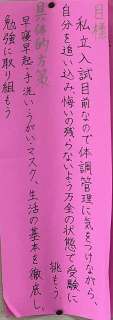 目標
私立入試目前なので体調管理に気をつけながら、
自分を追い込み、悔いの残らないよう万全の状態で受験に
挑もう
具体的方策
早寝早起き手洗い・うがい・マスク、生活の基本を徹底し、
勉強に取り組もう